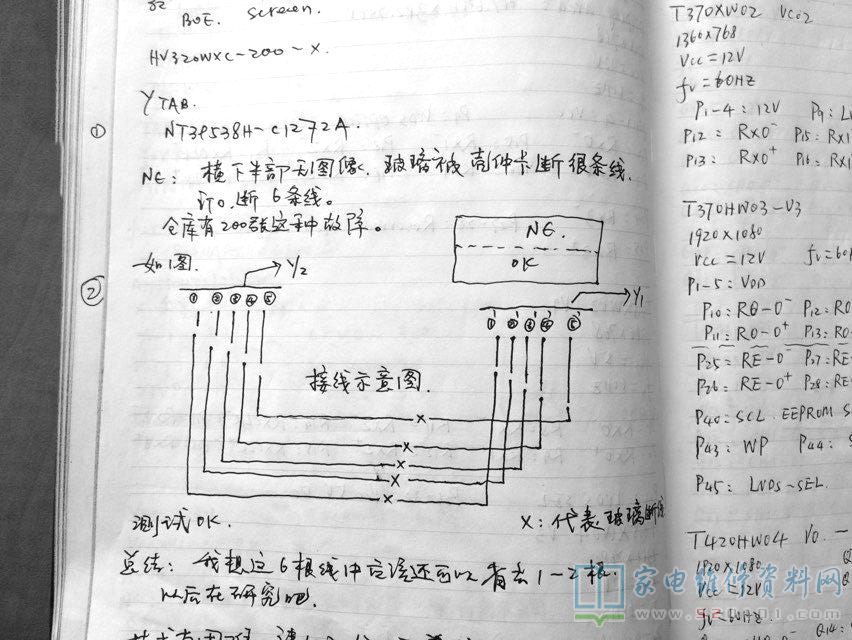 BOE. Screen.
HV320WXC-200-X.
YTAB.
①
NT39538H-C1272A.
NG: 横下半部无图像, 玻璃被壳体卡断很条线,
断6条线。
仓库有200张这种故障。
②
如图.
Y2
① ② ③ ④ ⑤
NG.
OK
Y1
①' ②' ③' ④' ⑤'
接线示意图.
x
x
x
x
x
测试OK.
X: 代表玻璃断
总结: 我想这6根线中应该还可以省去1-2根.
以后在研究吧.
T370XW02 VC02
1360x768
Vcc=12V
fv=60HZ
P1-4: 12V
P12 = RX0-
P13: RX0+
T370HW03-V3
1920x1080
Vcc=12V
P1-5: VDD
P10: RO-0- P12: RO
P11: RO-0+ P13: RO
P25: RE-0- P27: RE
P26: RE-0+ P28: RE
P40: SCL. EEPROM S
P43: WP P44:
P45: LVDS-SEL.
T420HW04 V0.
1920x1080
Vcc=12V
fv=60HZ
家电维修资料网